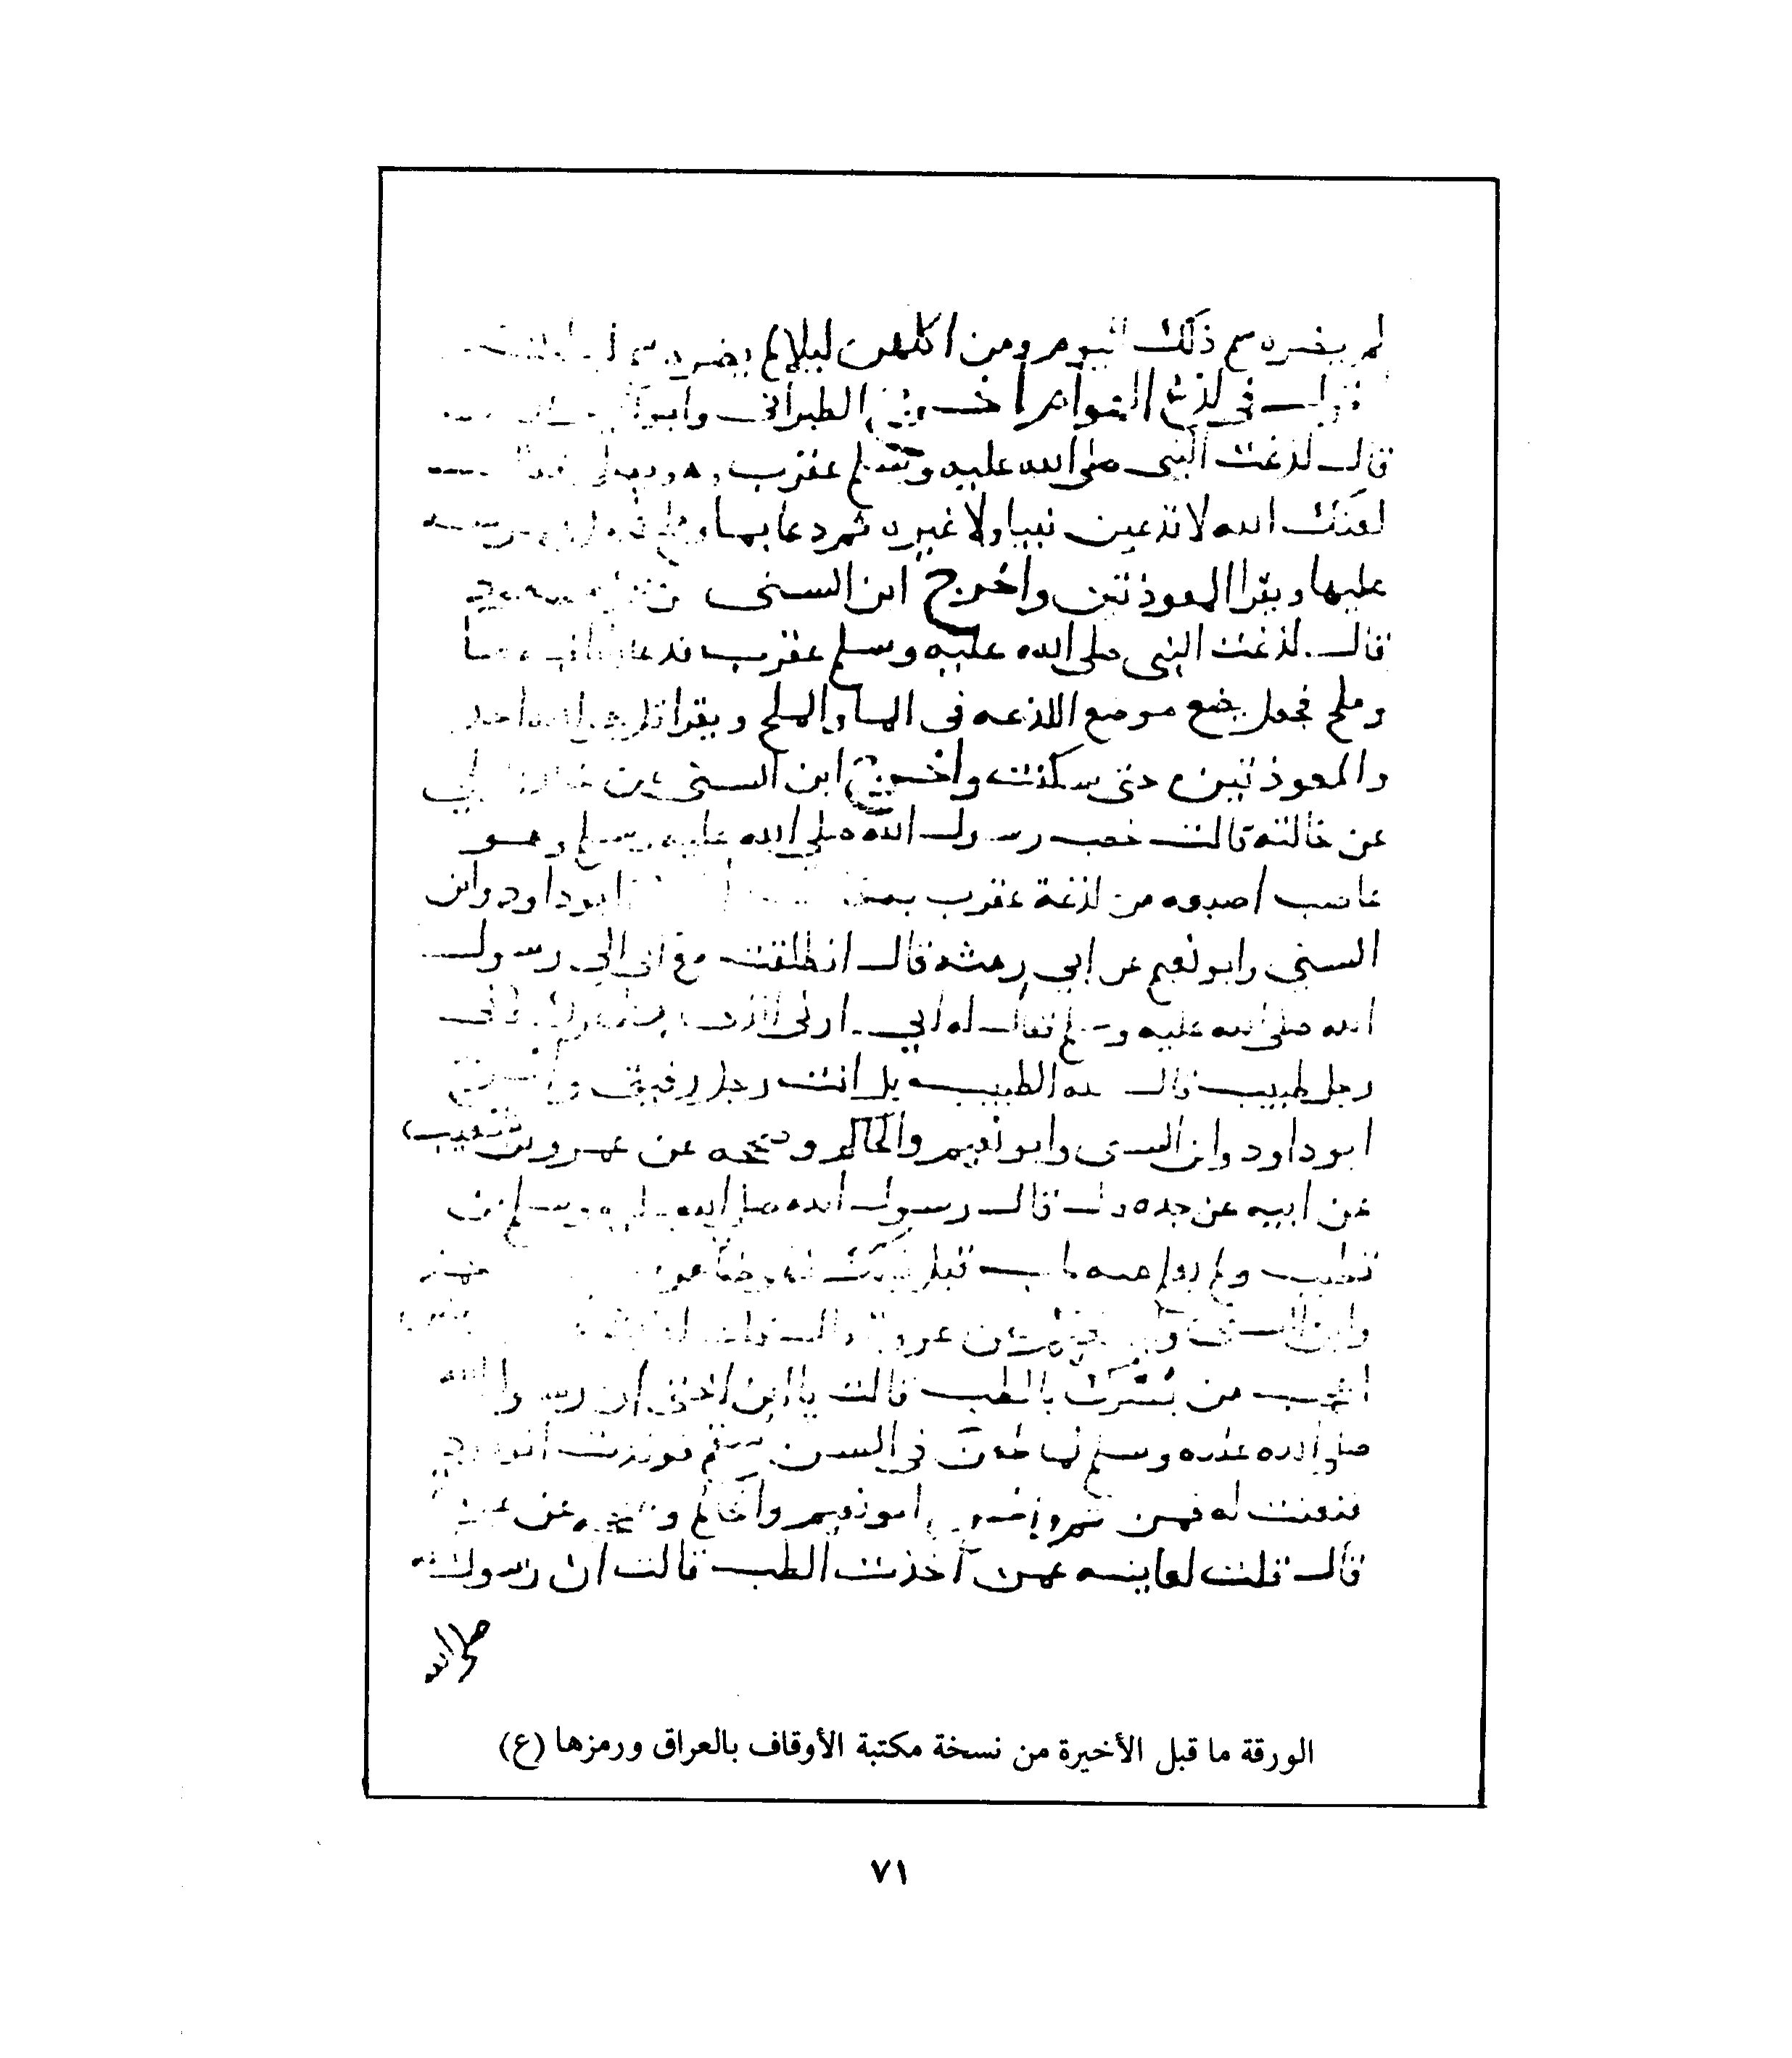 لم يضره سم ذلك اليوم ومن اكلهن ليلا لم يضره سم
باب في لذغ الهوام اخرج الطبراني وابو
قال لذغت النبي صلى الله عليه وسلم عقرب وهو يصلي فقال
لعنك الله لا تدعين نبيا ولا غيره ثم دعا بماء وملح
عليها ويقرا المعوذتين واخرج ابن السني
قال لذغت النبي صلى الله عليه وسلم عقرب فدعا بما
وملح فجعل يضع موضع اللذعه في الما والملح ويقرا قل هو الله احد
والمعوذتين حتى سكنت واخرج ابن السني عن
عن خالته قالت خطب رسول الله صلى الله عليه وسلم وهو
عاصب اصبعه من لذغة عقرب ابو داود وابن
السني وابو نعيم عن ابي رمثه قال انطلقت مع ابي الى رسول
الله صلى الله عليه وسلم فقال له ابي ارني الذي بظهرك فاني
رجل طبيب قال الله الطبيب بل انت رجل رفيق واخرج
ابو داود وابن السنى وابو نعيم والحاكم وصححه عن عمرو بن شعيب
عن ابيه عن جده قال قال رسول الله صلى الله عليه وسلم من
تطبب ولم يعلم منه طب قبل ذلك فهو ضامن
وابن السني وابو نعيم عن عروة
اعجب من بصرك بالطب قالت يا ابن اختي ان رسول الله
صلى الله عليه وسلم لما طعن في السن سقم فوفدت الوفود
فنعتت له فمن ثم واخرج ابو نعيم والحاكم وصححه عن
قال قلت لعايشه عمن اخذت الطب قالت ان رسول الله
صلى الله
الورقة ما قبل الأخيرة من نسخة مكتبة الأوقاف بالعراق ورمزها (ع)
٧١